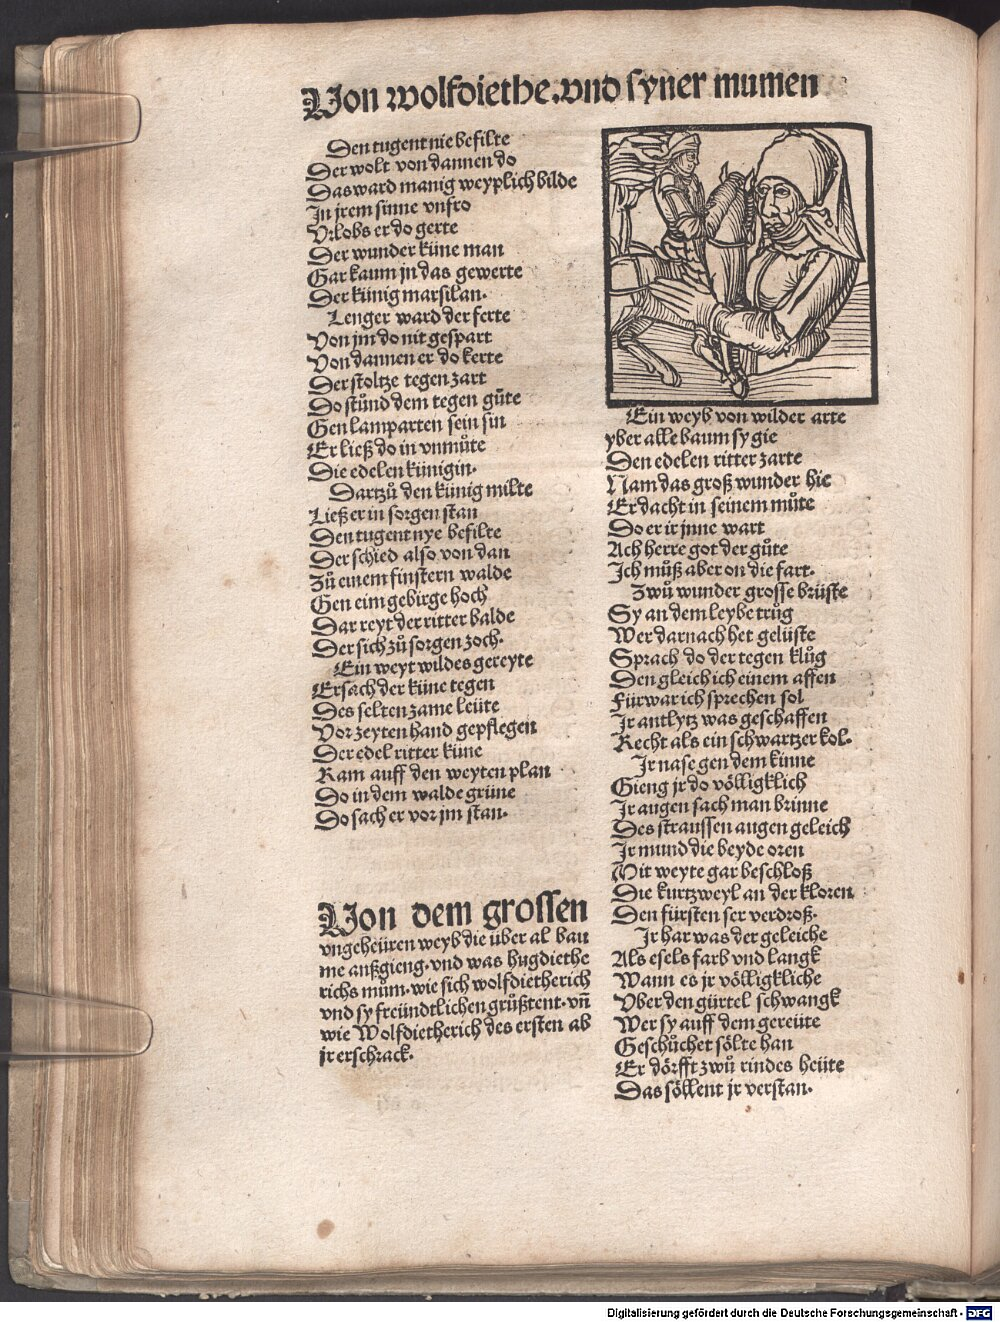 Von wolfdiethe. vnd syner mumen
Den tugent nie befilte
Der wolt von dannen do
Das ward manig weyplich bilde
In jrem sinne vnfro
Vrlobs er do gerte
Der wunder küne man
Gar kaum jn das gewerte
Der künig marsilan.
Lenger ward der ferte
Von jm do nit gespart
Von dannen er do kerte
Der stoltze tegen zart
Do stůnd dem tegen gůte
Gen lamparten sein sin
Er ließ do in vnmůte
Die edelen künigin.
Dartzů den künig milte
Ließ er in sorgen stan
Den tugent nye befilte
Der schied also von dan
Zů einem finstern walde
Gen eim gebirge hoch
Dar reyt der ritter balde
Der sich zů sorgen zoch.
Ein weyt wildes gereyte
Ersach der küne tegen
Des selten zame leüte
Vor zeyten hand gepflegen
Der edel ritter küne
Kam auff den weyten plan
Do in dem walde grüne
Do sach er vor jm stan.
Von dem grossen
vngeheüren weyb die über al bau
me außgieng. vnd was hugdiethe
richs mům. wie sich wolfdietherich
vnd sy freündtlichen grůßtent. vñ
wie Wolfdietherich des ersten ab
jr erschrack.
Ein weyb von wilder arte
yber alle baum sy gie
Den edelen ritter zarte
Nam das groß wunder hie
Er dacht in seinem můte
Do er ir jnne wart
Ach herre got der gůte
Ich můß aber on die fart.
Zwů wunder grosse brüste
Sy an dem leybe trůg
Wer darnach het gelüste
Sprach do der tegen klůg
Den gleich ich einem affen
Fürwar ich sprechen sol
Ir antlytz was geschaffen
Recht als ein schwartzer kol.
Ir nase gen dem kinne
Gieng jr do völligklich
Ir augen sach man brinne
Des straussen augen geleich
Ir mund die beyde oren
Mit weyte gar beschloß
Die kurtzweyl an der kloren
Den fürsten ser verdroß.
Ir har was der geleiche
Als esels farb vnd langk
Wann es jr völligkliche
Vber den gürtel schwangk
Wer sy auff dem gereüte
Geschůchet sölte han
Er dörfft zwů rindes heüte
Das söllent jr verstan.
Digitalisierung gefördert durch die Deutsche Forschungsgemeinschaft - DFG